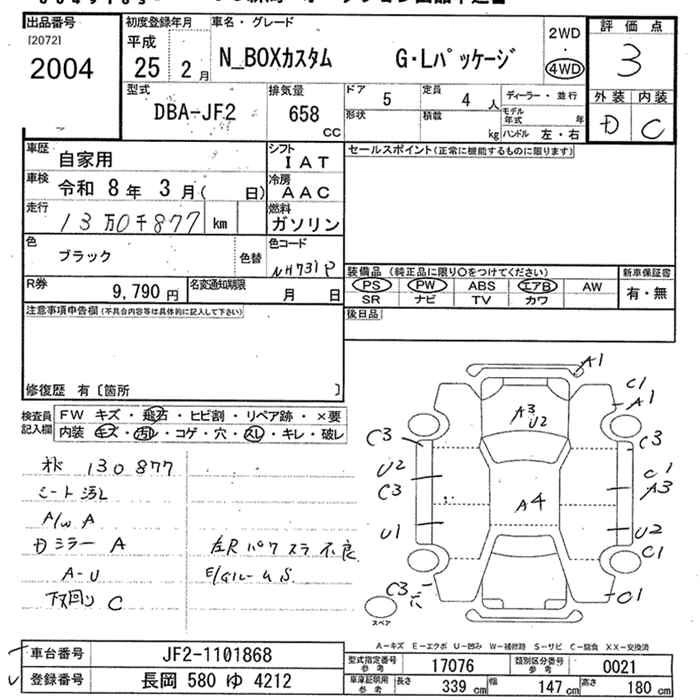 出品番号
[2072]
2004
初度登録年月
平成
25 2月
車名・グレード
N_BOXカスタム G・Lパッケージ
2WD
・
4WD
評価点
3
外装 内装
D C
型式
DBA-JF2
排気量
658
CC
ドア 5
定員 4人
ディーラー・並行
形状
積載 kg
モデル年式 年
ハンドル 左・右
車歴
自家用
シフト
IAT
セールスポイント(正常に機能するものに限ります)
車検
令和 8年 3月( 日)
冷房
AAC
走行
13万0千877 km
燃料
ガソリン
色
ブラック
色替
色コード
NH731P
R券
9,790円
名変通知期限
月 日
装備品(純正品に限り○をつけてください)
新車保証書
PS PW ABS エアB AW
有・無
SR ナビ TV カワ
注意事項申告欄(不具合内容等は具体的に記入して下さい)
後日品
修復歴 有〔箇所 〕
検査員記入欄
FW キズ・飛石・ヒビ割・リペア跡・×要
内装 キズ・汚れ・コゲ・穴・スレ・キレ・破レ
130877
シート汚レ
A/W A
Dミラー A
A-U
下回り C
左R パワスラ不良
A1
C1
A1
A3
U2
C3
C3
U2
C3
C1
A3
A4
U1
U2
C1
C3
C1
スペア
A-キズ E-エクボ U-凹み W-補修跡 S-サビ C-腐食 XX-交換済
車台番号
JF2-1101868
型式指定番号
参考
17076
類別区分番号
参考
0021
登録番号
長岡 580 ゆ 4212
車庫証明用
参考
長さ 339 cm
幅 147 cm
高さ 180 cm